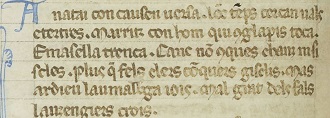 A natai con causen uersa. loc tẽps cercan uale
eterites. Marrit con hom qui oglapis toca.
Emasella trenca. Canc nõ oques chaim nis
felos. plus q̃ fels elers cõquers giselis. Mas
ardieu laumassga iois. Mal giur dels fals
lausengiers crois.